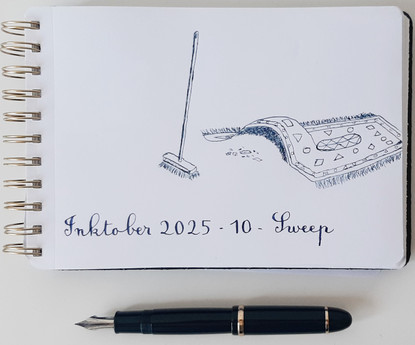 Inktober 2025 - 10 - Sweep